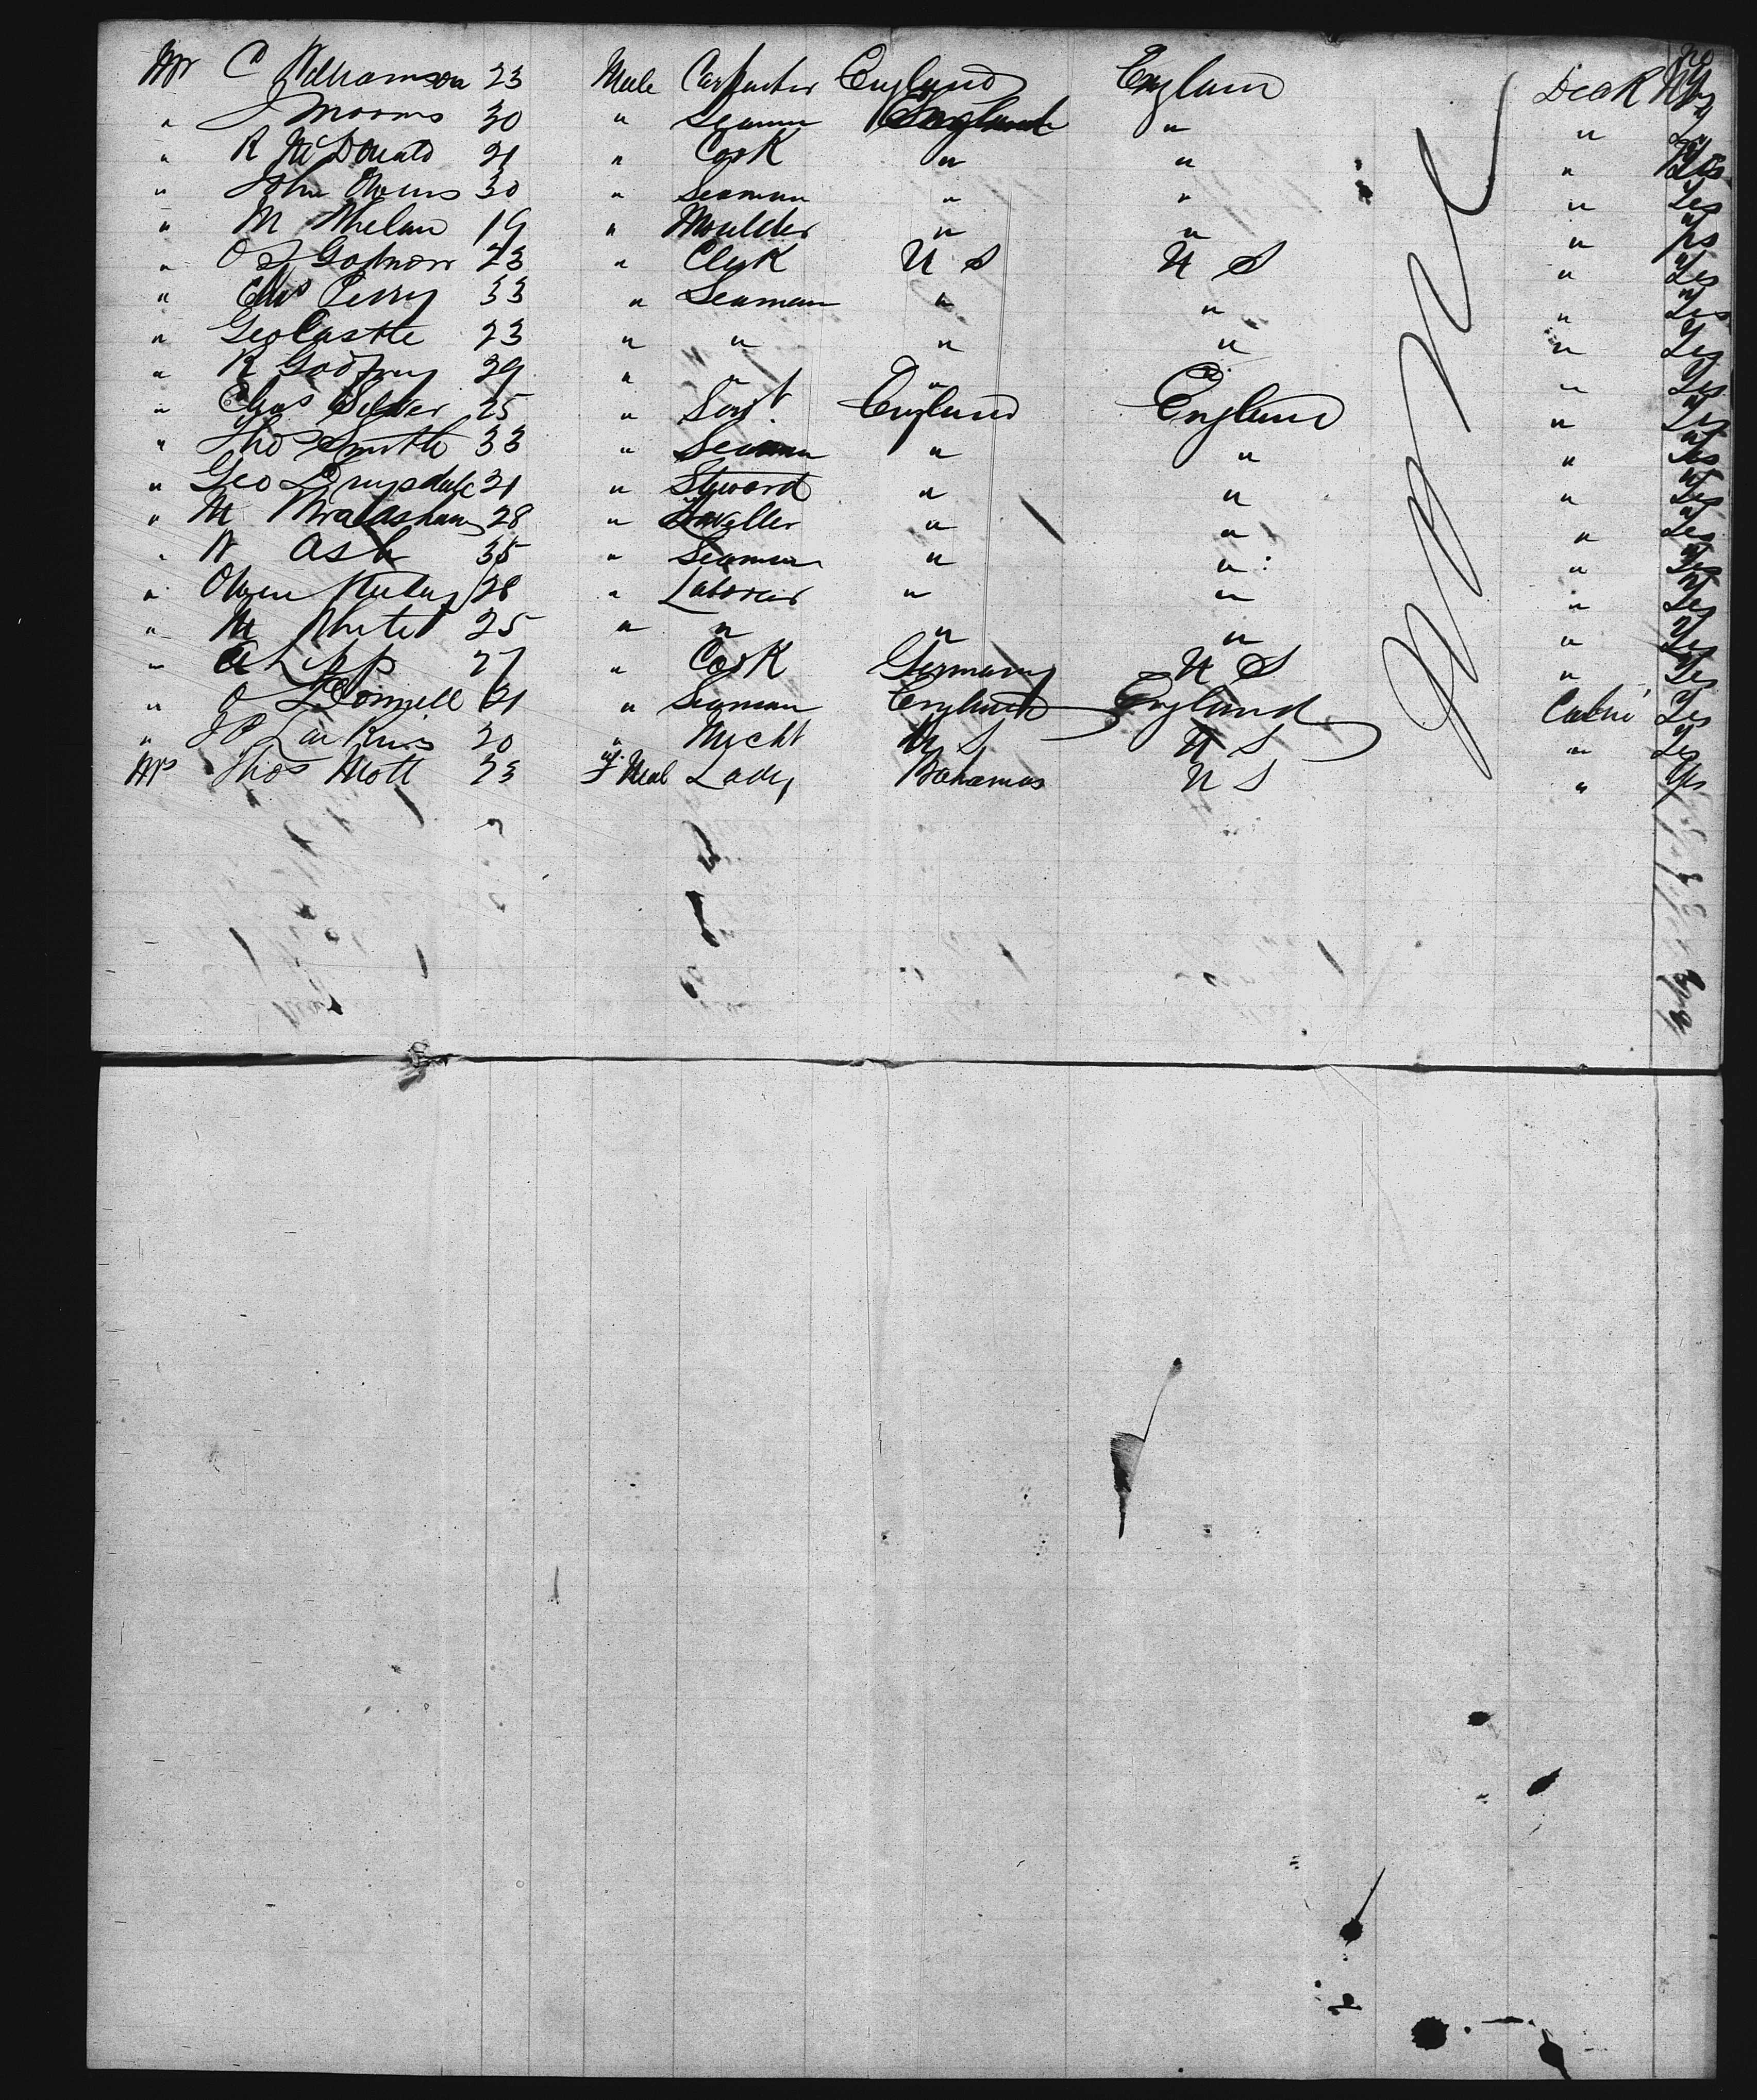 Mr C Williamson 23 Male Carpenter England England Deck
" J Mooms 30 " Seaman England " "
" R McDonald 21 " Cook " " " Yes
" John Owens 30 " Seaman " " " Yes
" M Whelan 19 " Moulder " " " Yes
" 23 " Clerk U S U S " Yes
" Chas Perry 33 " Seaman " " " Yes
" Geo Castle 23 " " " " " Yes
" R Godfrey 29 " " " " " Yes
" Chas 25 " England England " Yes
" Thos Smith 33 " Seaman " " " Yes
" Geo Drysdale 21 " Steward " " " Yes
" M 28 " " " " Yes
" W Ash 35 " Seaman " " " Yes
" Owen 28 " Laborer " " " Yes
" M White 25 " " " " " Yes
" A Lipp 27 " Cook Germany U S " Yes
" O Donnell 21 " Seaman England England Cabin Yes
" J P Larkins 20 " Mecht U S U S " Yes
Mrs Thos Mott 23 Lady Bahamas U S " Yes